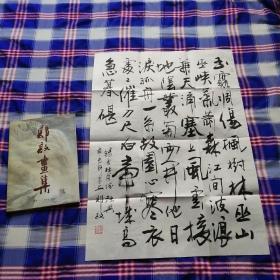 玉露凋傷楓樹林巫山
巫峡氣蕭森江间波浪
兼天涌塞上風雲接
地陰叢菊兩開他日
淚孤舟一系故園心寒衣
處處催刀尺白帝城高
急暮砧
畫集